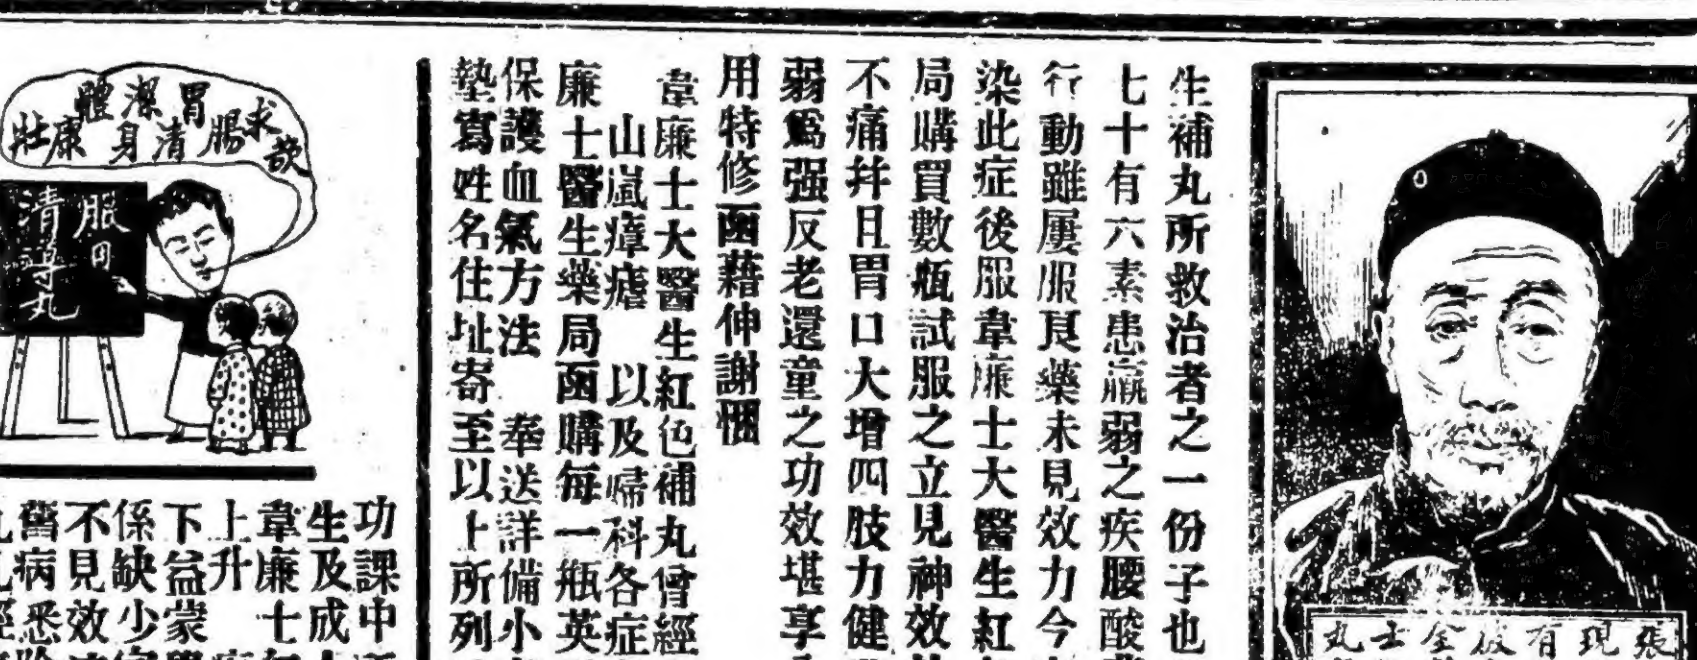 生補丸所救治者之一份子也
七十有六素患羸弱之疾腰酸
行動雖屢服良藥未見效力今
染此症後服韋廉士大醫生紅
局購買數瓶試服之立見神效
不痛幷且胃口大增四肢力健
弱爲强反老還童之功效堪享
用特修函藉伸謝悃
韋廉士大醫生紅色補丸曾經
山嵐瘴瘧 以及婦科各症
廉士醫生藥局函購每一瓶英
保護血氣方法 奉送詳備小
墊寫姓名住址寄至以上所列
張
現
有
全
士
丸
欲求腸胃清潔身體康壯
服用
清導丸
功課中
生及成
韋廉士
上升
下益蒙
係缺少
不見效
舊病悉除